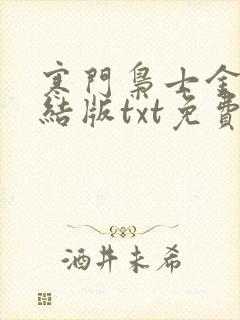 寒門梟士全
結版txt免費
酒井未希